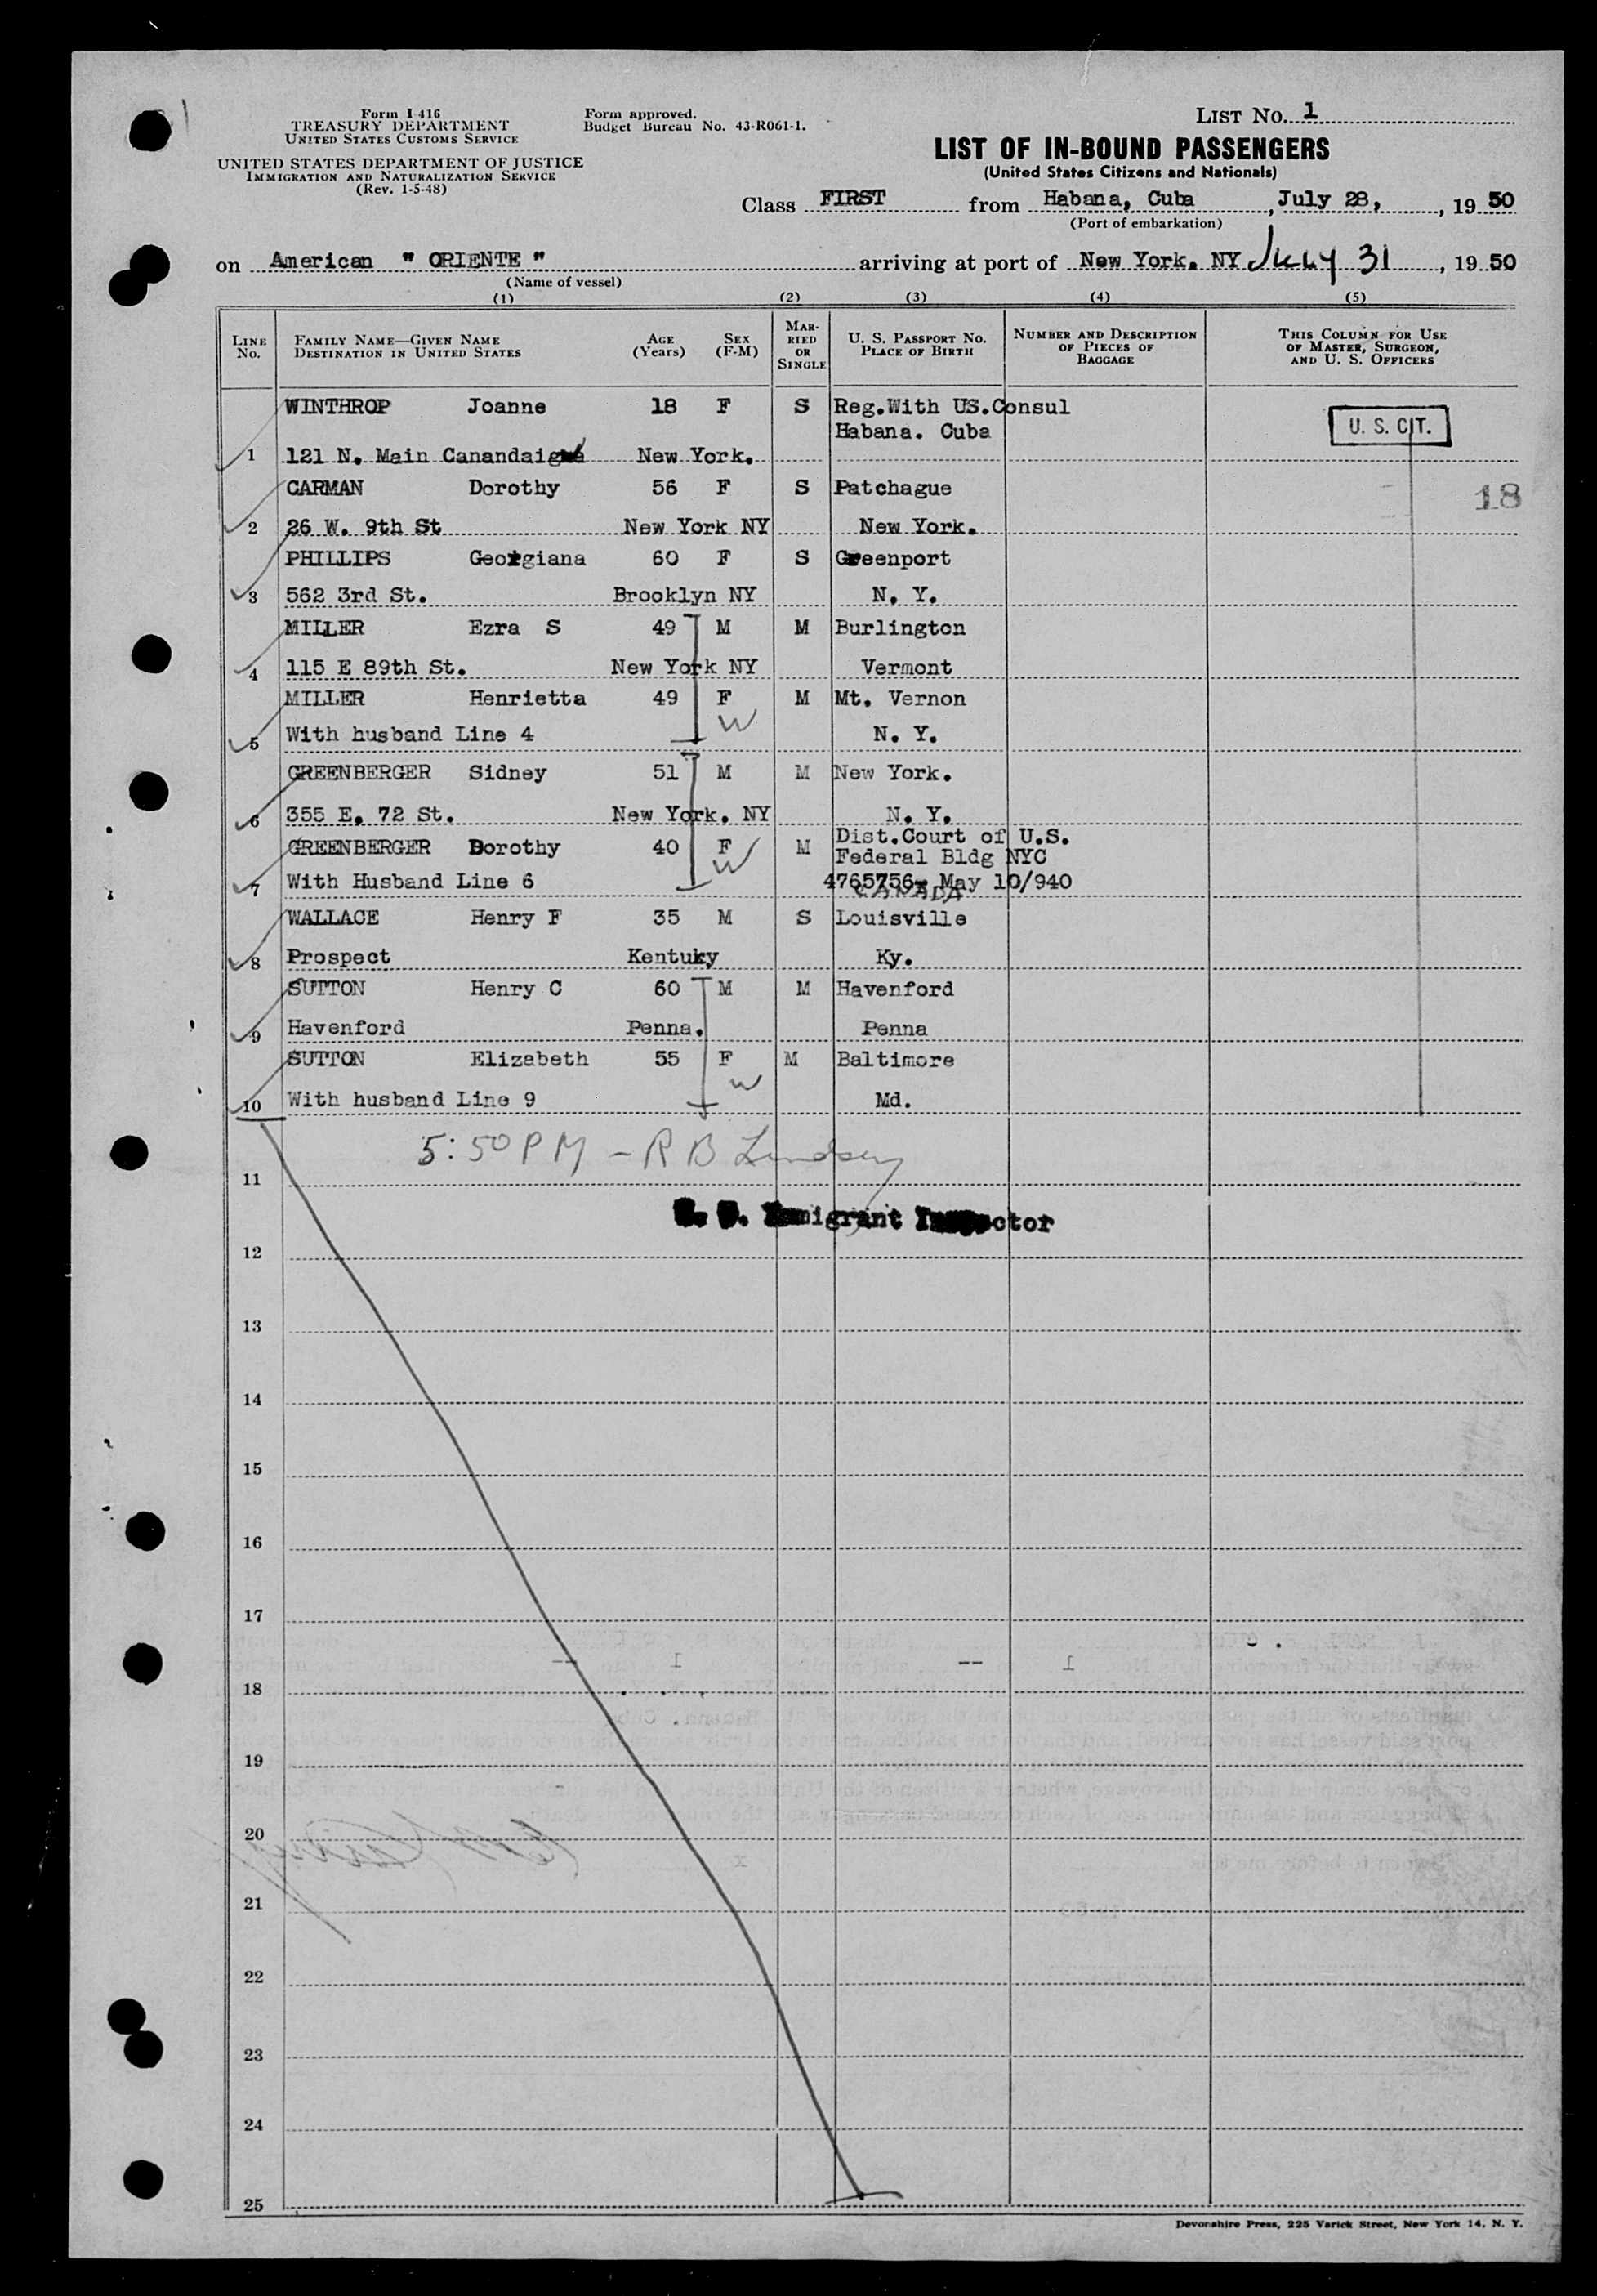 Form I 416
TREASURY DEPARTMENT
UNITED STATES CUSTOMS SERVICE
UNITED STATES DEPARTMENT OF JUSTICE
IMMIGRATION AND NATURALIZATION SERVICE
(Rev. 1-5-48)
Form approved.
Budget Bureau No. 43-R061-1.
LIST No. 1
LIST OF IN-BOUND PASSENGERS
(United States Citizens and Nationals)
Class FIRST from Habana, Cuba, July 28, , 19 50
(Port of embarkation)
on American " ORIENTE " arriving at port of New York. NY July 31, 19 50
(Name of vessel)
(1) (2) (3) (4) (5)
LINE No. FAMILY NAME—GIVEN NAME DESTINATION IN UNITED STATES AGE (Years) SEX (F-M) MARRIED OR SINGLE U. S. PASSPORT No. PLACE OF BIRTH NUMBER AND DESCRIPTION OF PIECES OF BAGGAGE THIS COLUMN FOR USE OF MASTER, SURGEON, AND U. S. OFFICERS
WINTHROP Joanne 18 F S Reg.With US.Consul
Habana. Cuba U. S. CIT.
1 121 N. Main Canandaigua New York.
CARMAN Dorothy 56 F S Patchague 18
2 26 W. 9th St New York NY New York.
PHILLIPS Georgiana 60 F S Greenport
3 562 3rd St. Brooklyn NY N. Y.
MILLER Ezra S 49 M M Burlington
4 115 E 89th St. New York NY Vermont
MILLER Henrietta 49 F M Mt. Vernon
W
5 With husband Line 4 N. Y.
GREENBERGER Sidney 51 M M New York.
6 355 E. 72 St. New York. NY N. Y.
Dist.Court of U.S.
GREENBERGER Dorothy 40 F M Federal Bldg NYC
W
7 With Husband Line 6 4765756- May 10/940
CANADA
WALLACE Henry F 35 M S Louisville
8 Prospect Kentuky Ky.
SUTTON Henry C 60 M M Havenford
9 Havenford Penna. Penna
SUTTON Elizabeth 55 F M Baltimore
W
10 With husband Line 9 Md.
5:50 PM - R B Lindsey
11
U. S. Immigrant Inspector
12
13
14
15
16
17
18
19
20
21
22
23
24
25
Devonshire Press, 225 Varick Street, New York 14, N. Y.